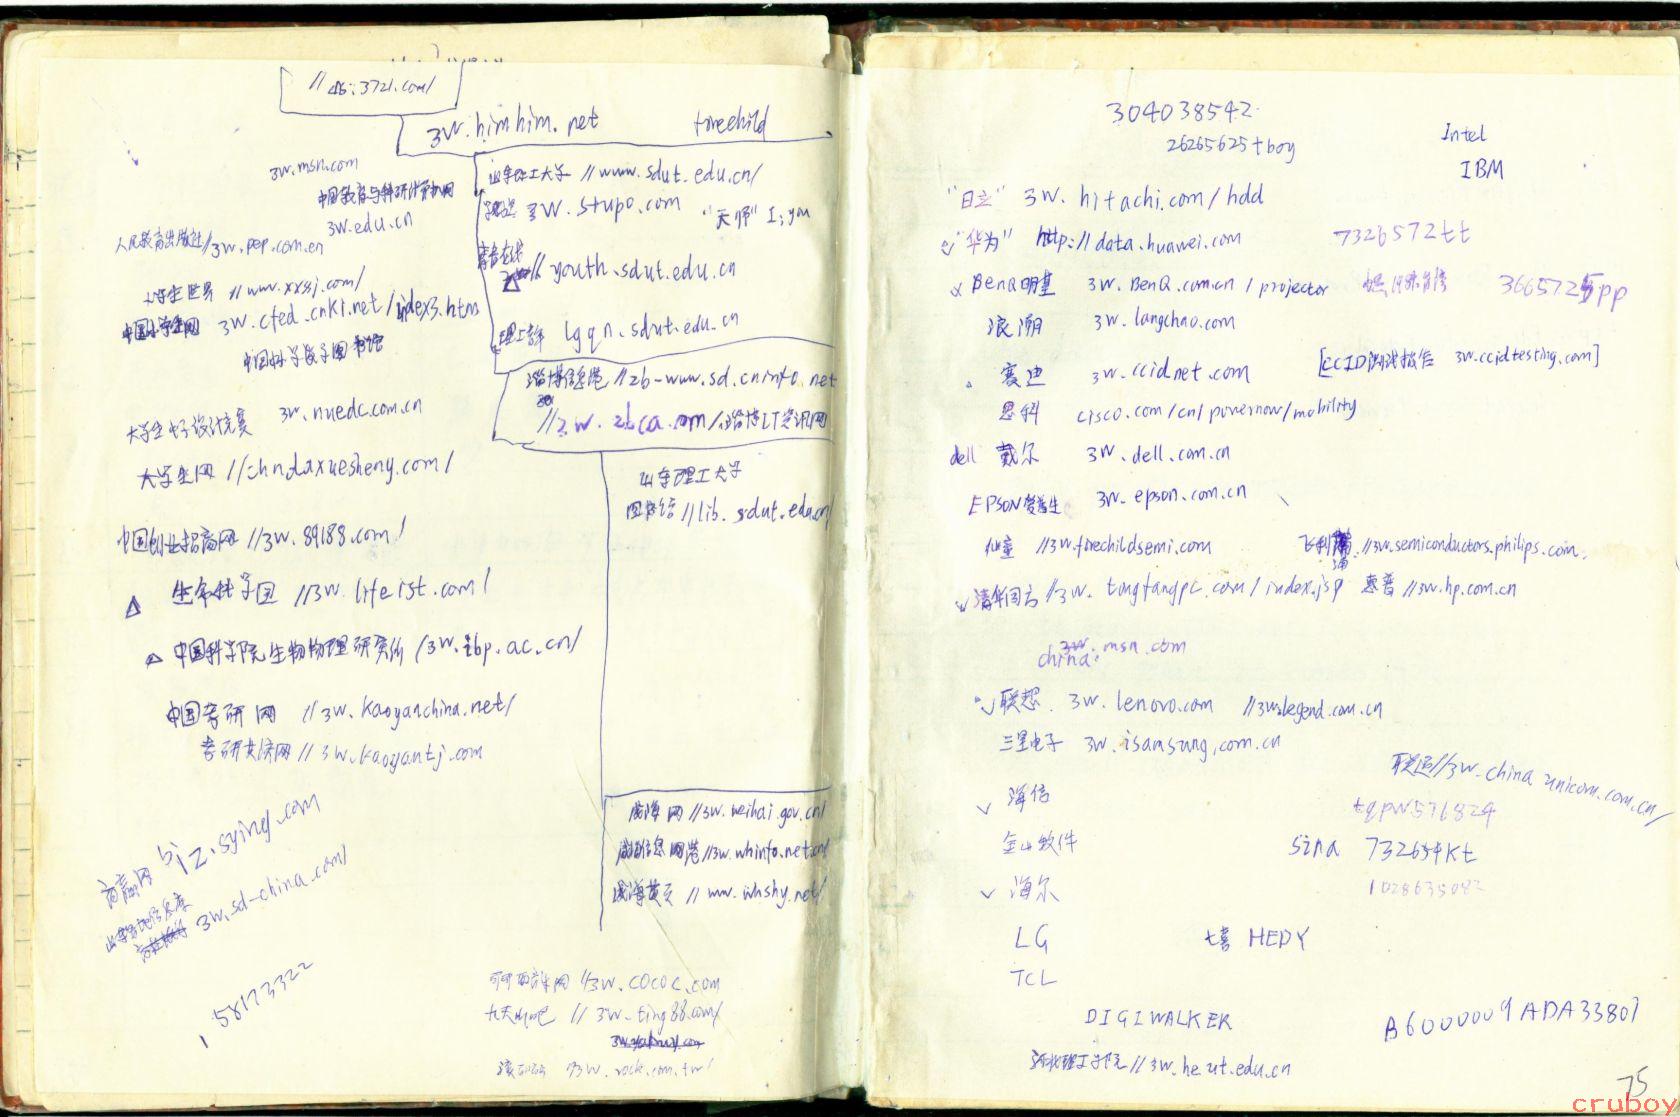 //db.3721.com/
3w.himhim.net
3w.msn.com
中国教育与科研计算机网
3w.edu.cn
人民教育出版社//3w.pep.com.cn
//www.xxsj.com/
3w.cfed.cnki.net/index3.htm
大学生电子设计竞赛 3w.nuedc.com.cn
大学生网 //chn.daxuesheng.com/
中国创业招商网//3w.89188.com/
△ 生命科学园 //3w.lifeist.com/
△ 中国科学院生物物理研究所/3w.ibp.ac.cn/
中国考研网 //3w.kaoyanchina.net/
考研共济网//3w.kaoyantj.com
商赢网 biz.sying.com
3w.sd-china.com/
158173322
山东理工大学 //www.sdut.edu.cn/
3w.stupo.com "天师" I;you
青春在线
△ // youth.sdut.edu.cn
lgqn.sdut.edu.cn
淄博信息港//zb-www.sd.cninfo.net
//3w.zbca.com/淄博IT资讯网
山东理工大学
图书馆//lib.sdut.edu.cn/
威海网//3w.weihai.gov.cn/
威海信息网港//3w.whinfo.net.cn/
威海黄页 //www.whshy.net/
//3w.cococ.com
九天听吧 //3w.ting88.com/
滚石 //3w.rock.com.tw/
304038542
26265625+boy
Intel
IBM
"日立" 3w.hitachi.com/hdd
"华为" http://data.huawei.com 7326572tt
BenQ明基 3w.BenQ.com.cn/projector 3665725pp
浪潮 3w.langchao.com
赛迪 3w.ccidnet.com [CCID测试报告 3w.ccidtesting.com]
思科 cisco.com/cn/powernow/mobility
dell 戴尔 3w.dell.com.cn
EPSON爱普生 3w.epson.com.cn
仙童 //3w.firechildsemi.com 飞利浦 //3w.semiconductors.philips.com
清华同方//3w.tongfangpc.com/index.jsp 惠普//3w.hp.com.cn
china.msn.com
联想 3w.lenovo.com //3w.legend.com.cn
三星电子 3w.isamsung.com.cn
联通//3w.chinaunicom.com.cn/
✓ 海信 tqpw571824
金山软件 sina 732654kt
✓ 海尔 1028635082
LG 七喜 HEDY
TCL
DIGIWALKER B6000009ADA33807
河北理工学院//3w.heut.edu.cn
75
cruboy